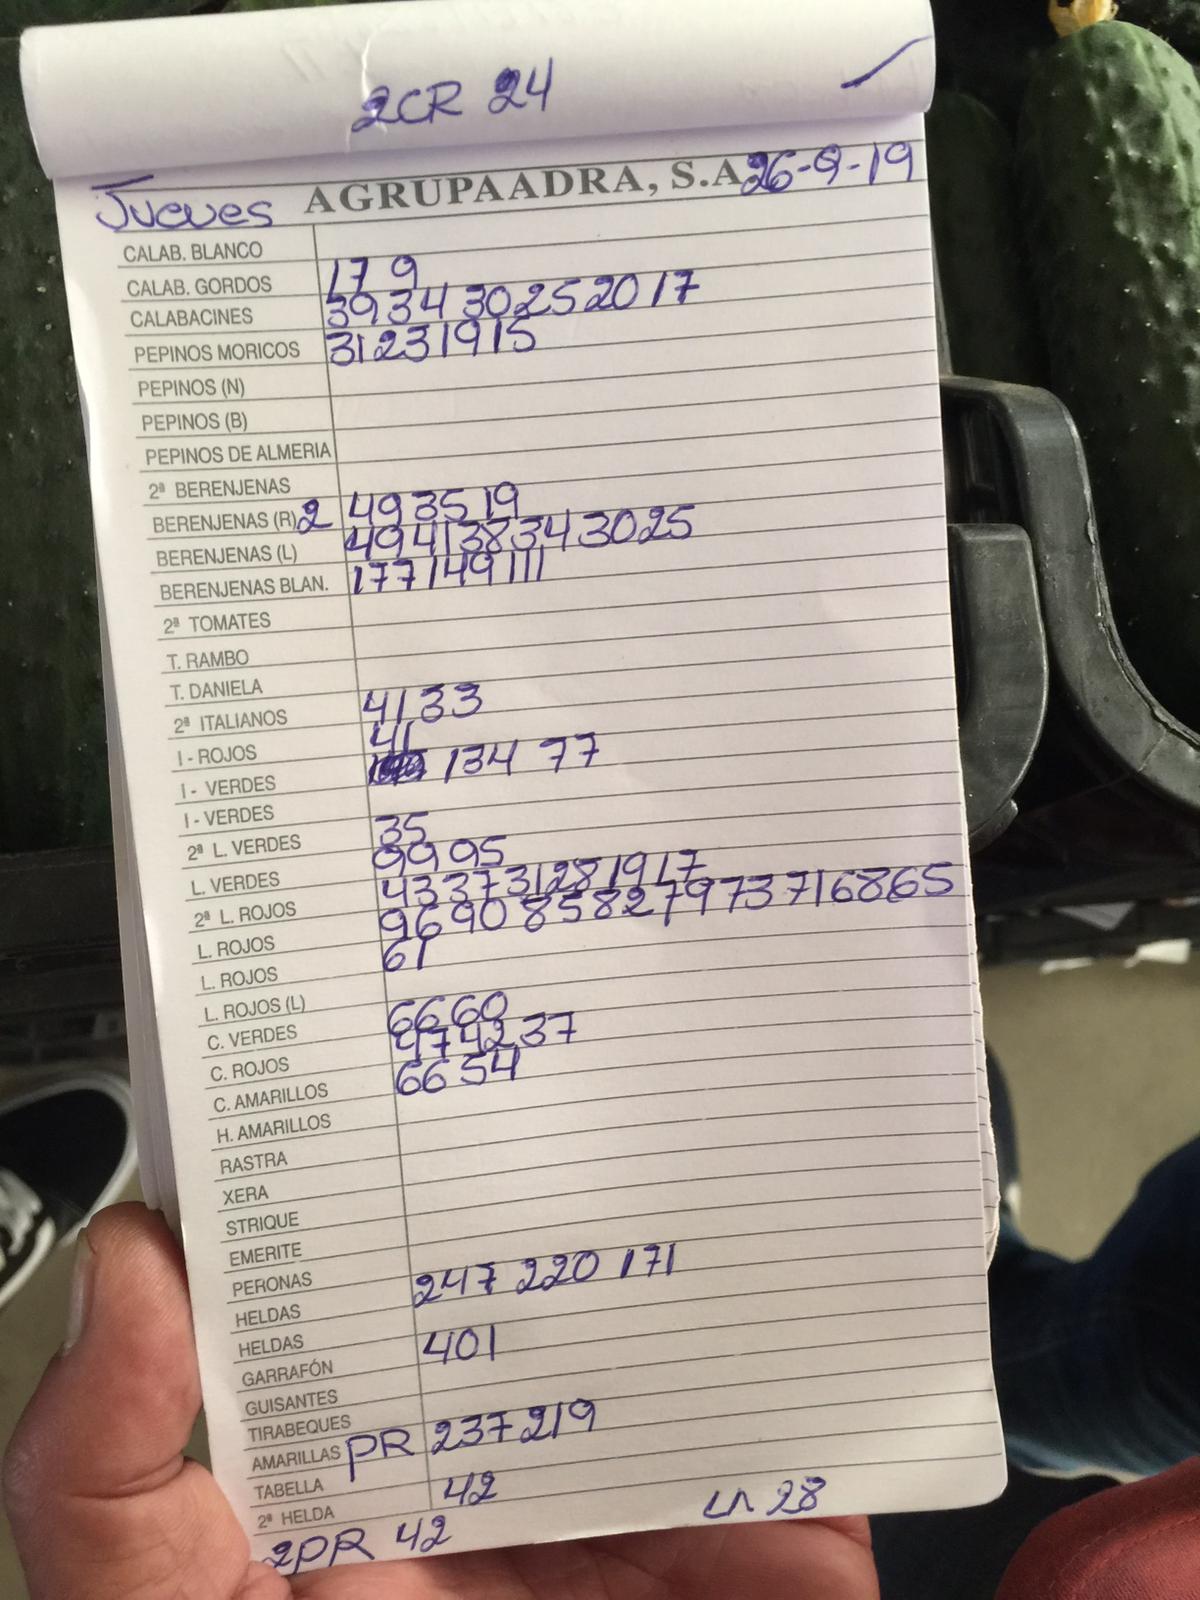 2CR 24
Jueves AGRUPAADRA, S.A. 26-9-19
CALAB. BLANCO
CALAB. GORDOS 17 9
CALABACINES 39 34 30 25 20 17
PEPINOS MORICOS 31 23 19 15
PEPINOS (N)
PEPINOS (B)
PEPINOS DE ALMERIA
2ª BERENJENAS
BERENJENAS (R) 2 49 35 19
BERENJENAS (L) 49 41 38 34 30 25
BERENJENAS BLAN. 177 149 111
2ª TOMATES
T. RAMBO
T. DANIELA
2ª ITALIANOS 41 33
I - ROJOS 41
I - VERDES 134 77
I - VERDES
2ª L. VERDES 35
L. VERDES 99 95
2ª L. ROJOS 43 37 31 28 19 17
L. ROJOS 96 90 85 82 79 73 71 68 65
L. ROJOS 61
L. ROJOS (L)
C. VERDES 66 60
C. ROJOS 47 42 37
C. AMARILLOS 66 54
H. AMARILLOS
RASTRA
XERA
STRIQUE
EMERITE
PERONAS
HELDAS 247 220 171
HELDAS
GARRAFÓN 401
GUISANTES
TIRABEQUES
AMARILLAS PR 237 219
TABELLA
2ª HELDA 42
2PR 42 28